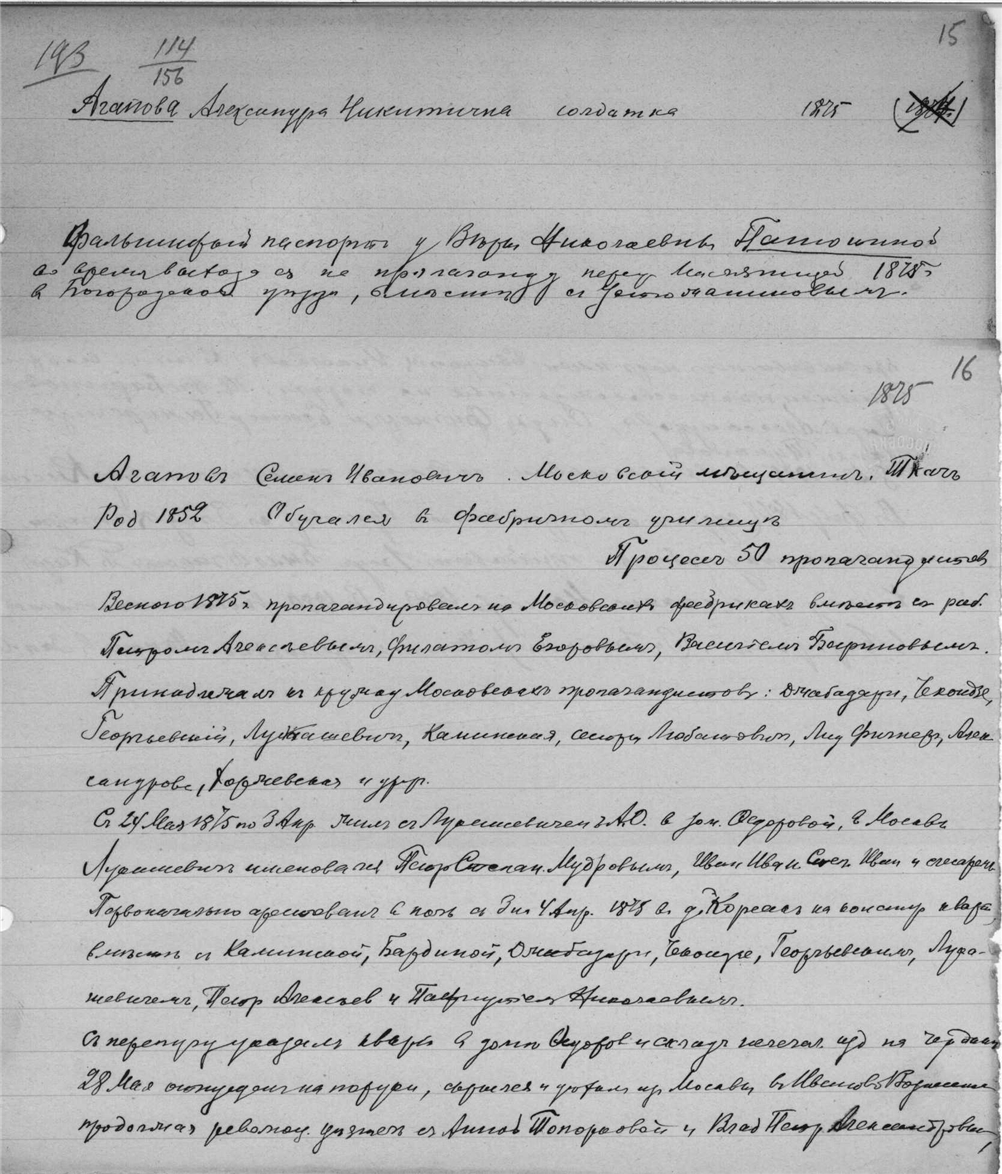 15
193 114/156
Агапова Александра Никитична солдатка 1875 (1874.)
Фальшивый паспортъ у Вѣры Николаевны Патюшиной
во время выхода ея на пропаганду передъ Масляницей 1875 г.
в Богородском уезде, вместе с Устюжаниновым.
16
1875
Агаповъ Семенъ Ивановичъ. Московскій мѣщанинъ. Ткачъ
Род 1852 Обучался в фабричномъ училищѣ
Процессъ 50 пропагандистов
Весною 1875 г. пропагандировалъ на Московскихъ фабрикахъ вмѣстѣ съ раб.
Петромъ Алексѣевымъ, Филатомъ Егоровымъ, Василіемъ Бариновымъ.
Принадлежалъ къ кружку Московскихъ пропагандистов: Джабадари, Чекоидзе,
Георгіевскій, Лукашевич, Каминская, сестры Любатович, Лид Фигнеръ, Алек-
сандрова, Хоржевская и др.
Съ 24 Мая 1875 по 3 Апр жилъ съ Лукашевичем в д. Ѳедоровой, в Москвѣ
Лукашевичъ именовался Петр Степан. Мудровымъ, Иван Иван. и слесарем
Первоначально арестованъ в ночь с 3 на 4 Апр. 1875 в д. Корсакъ на конспир кварт
вмѣстѣ съ Каминской, Бардиной, Джабадари, Чекоидзе, Георгіевскимъ, Лука-
шевичемъ, Петр Алексѣев и Пафнутіем Николаевымъ.
Съ перепугу указалъ кварт в домѣ Ѳедоров и складъ нелегал изд на чердакѣ
28 Мая отпущенъ на поруки, скрылся и уехал из Москвы в Иваново Вознесенск
продолжая революц. дѣятел съ Анной Топорковой и Влад Петр Александровым,